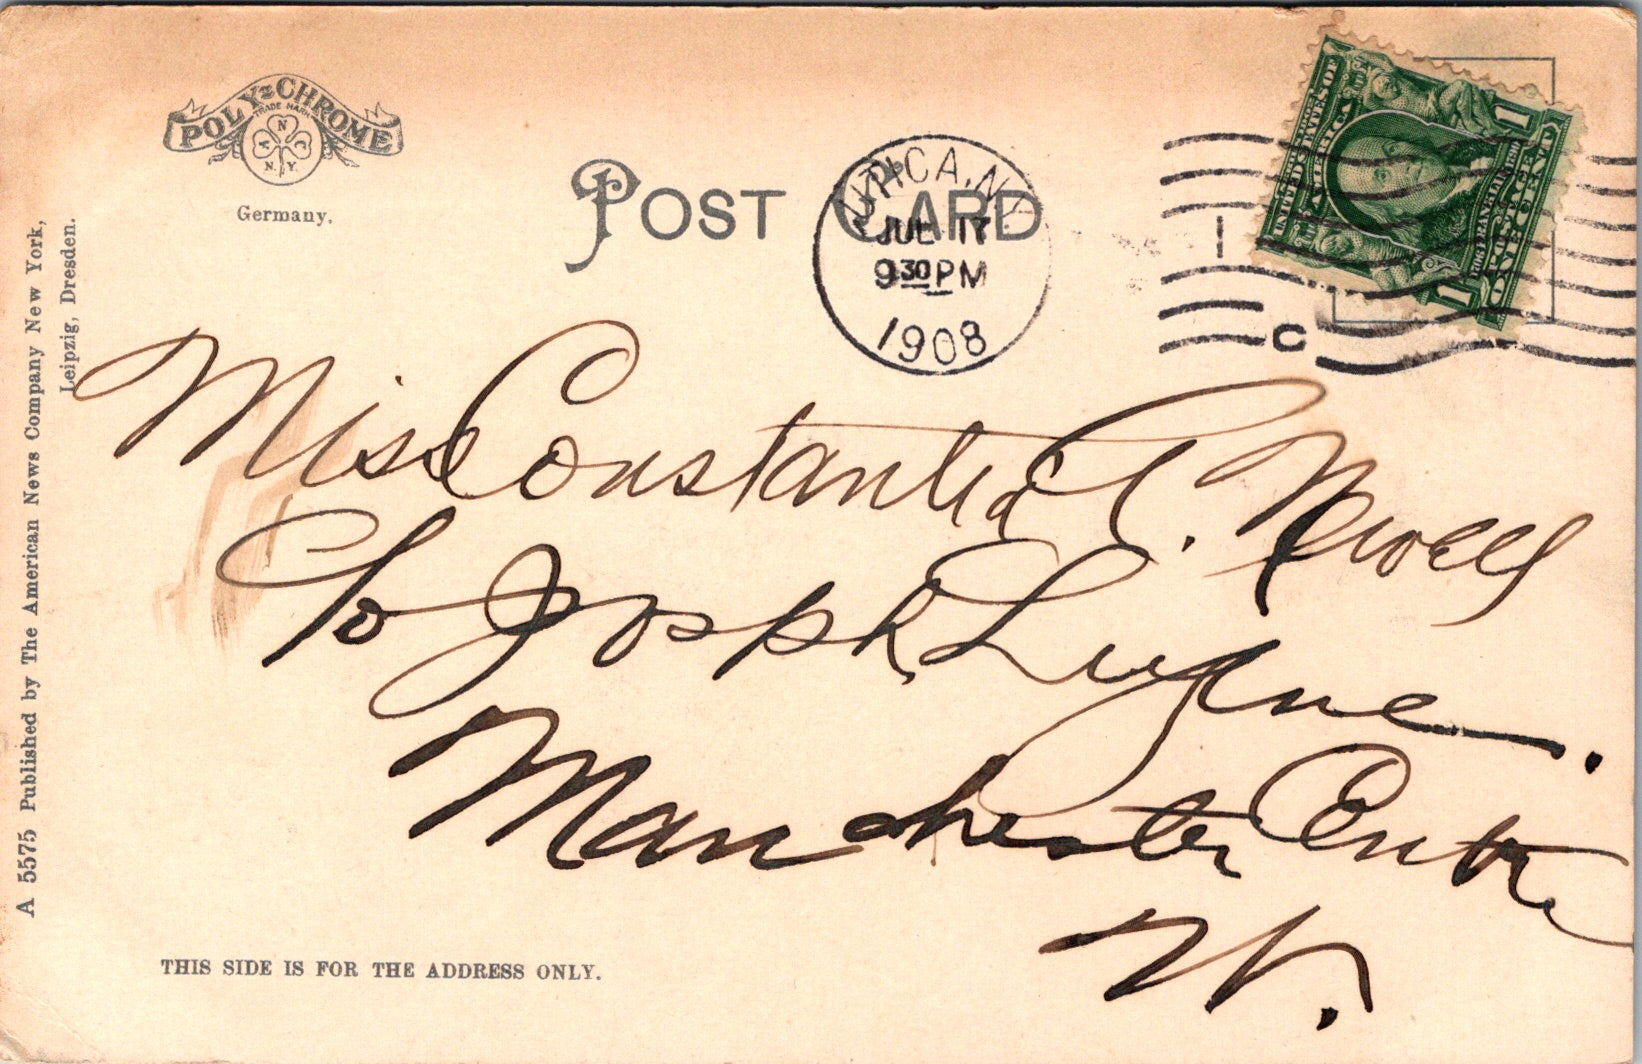 POLY-CHROME
TRADE MARK
A N C
N.Y.
Germany.
POST CARD
UTICA, N.Y.
JUL 17
9 30 PM
1908
1
C
UNITED STATES OF AMERICA
1
1
FRANKLIN
ONE CENT
A 5575 Published by The American News Company New York,
Leipzig, Dresden.
Miss Constantia C. Newell
c/o Joseph
Manchester Centre
Vt.
THIS SIDE IS FOR THE ADDRESS ONLY.